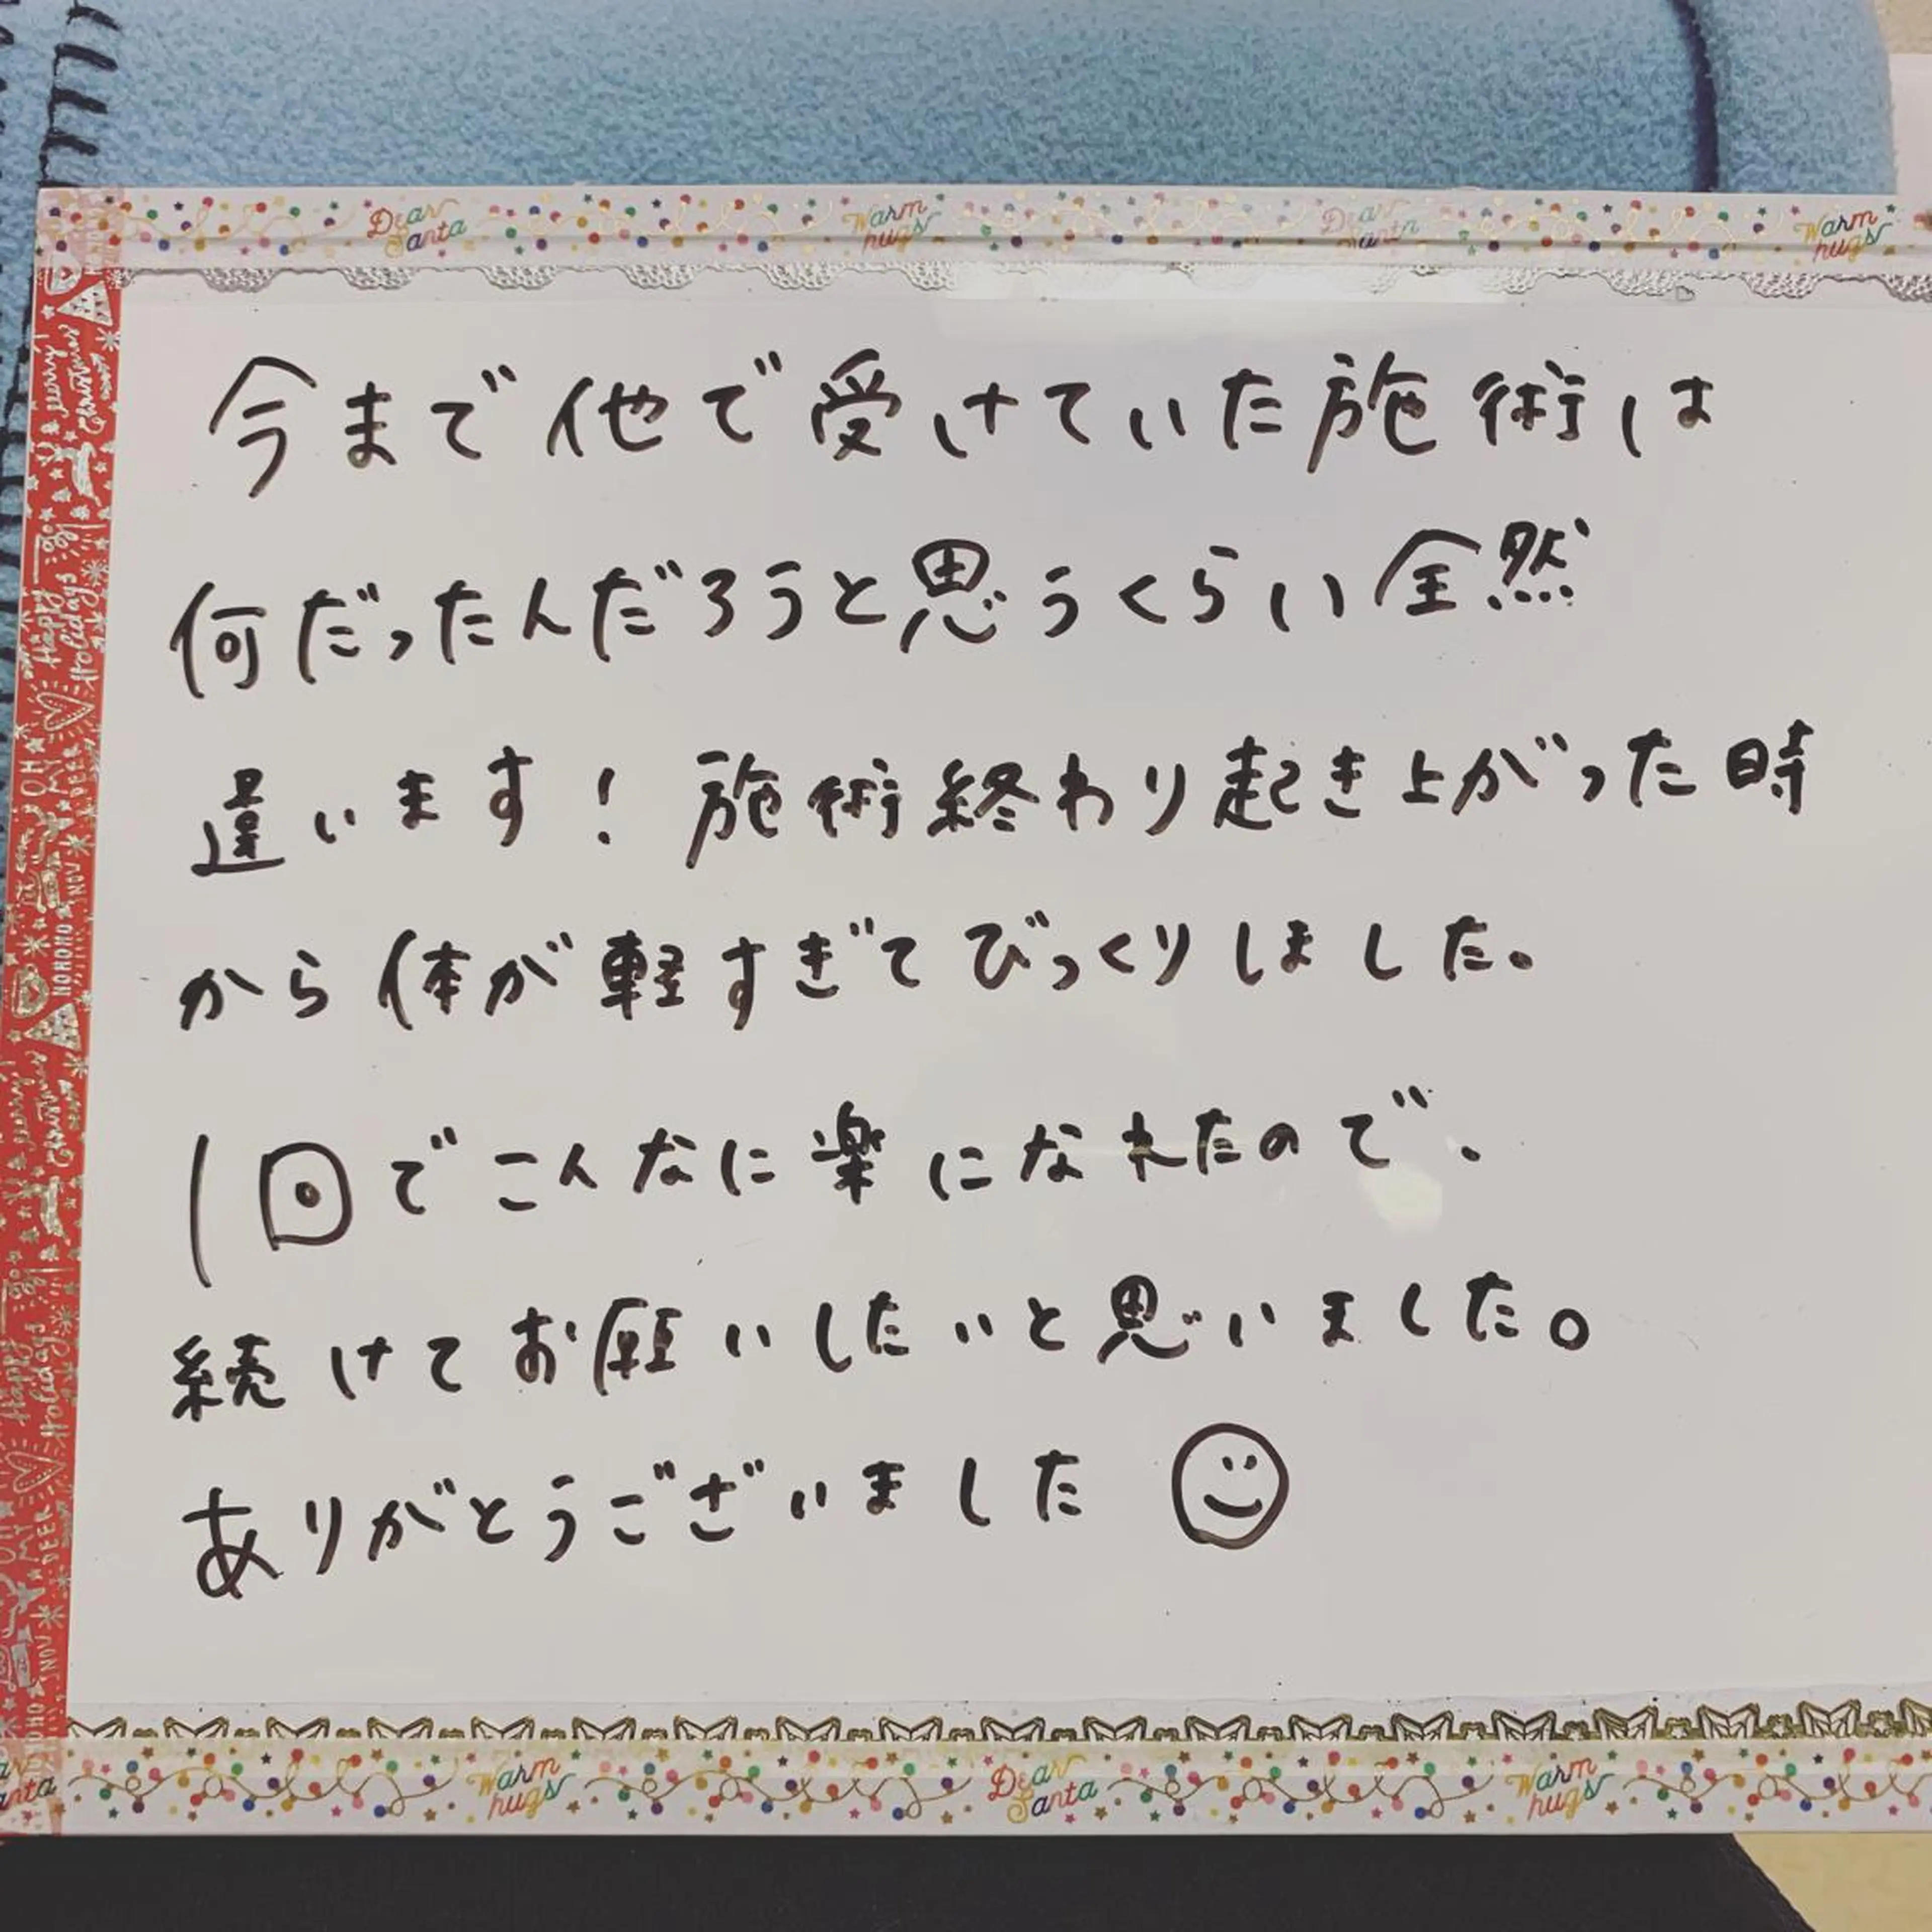 Dear Santa Warm hugs Dear Santa Warm hugs
今まで他で受けていた施術は
何だったんだろうと思うくらい全然
違います！施術終わり起き上がった時
から体が軽すぎてびっくりしました。
1回でこんなに楽になれたので、
続けてお願いしたいと思いました。
ありがとうございました
Merry Christmas
Happy Holidays
OH MY DEER
HOHOHO
Merry Christmas
Happy Holidays
OH MY DEER
Warm hugs Dear Santa Warm hugs